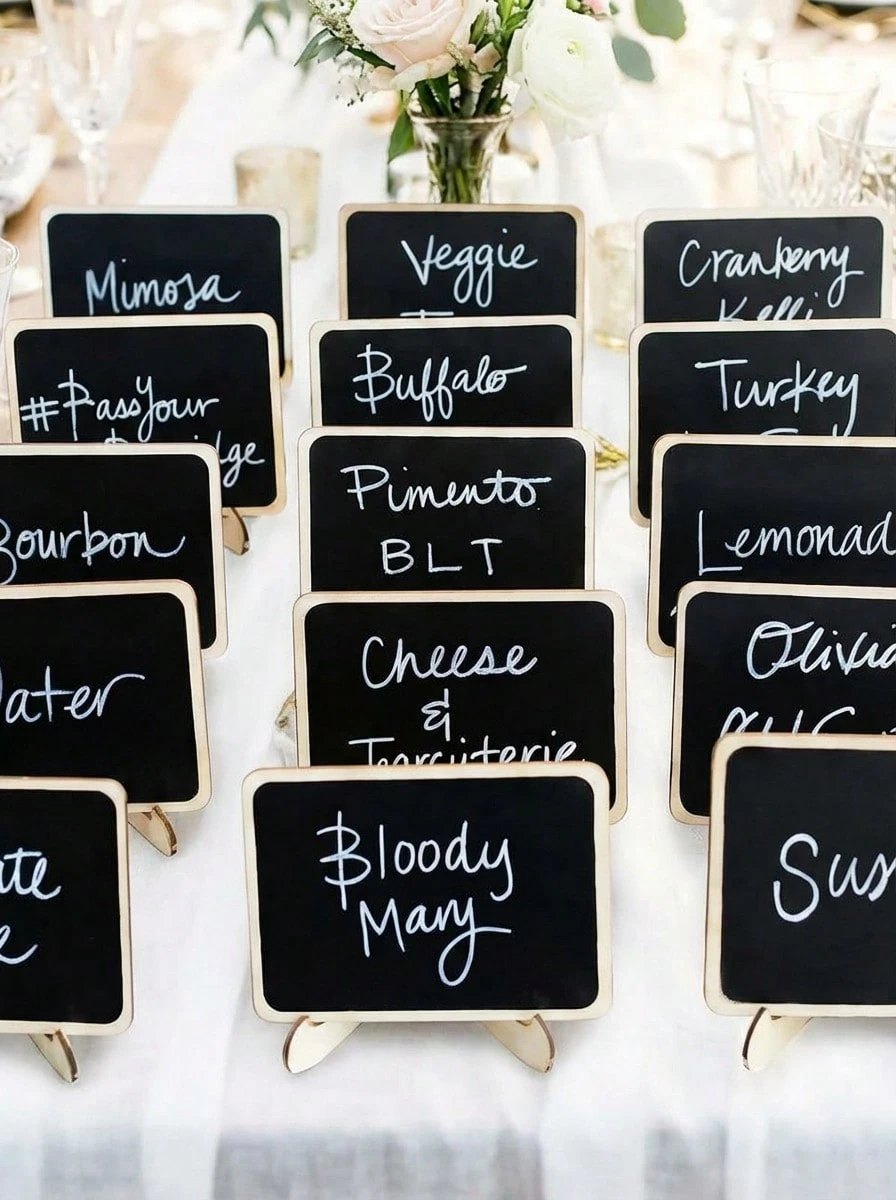 Mimosa
Veggie
Cranberry
Kelli
#PassYour
Buffalo
Turkey
Bourbon
Pimento
BLT
Lemonad
ater
Cheese
&
Olivia
Bloody
Mary
Sus